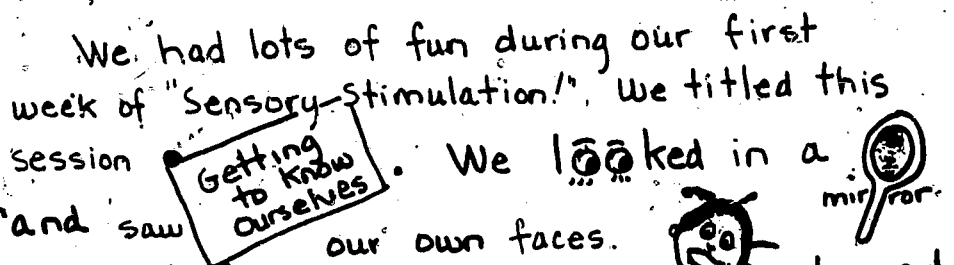 We had lots of fun during our first
week of "Sensory-Stimulation!". We titled this
session Getting to know ourselves. We looked in a mirror
and saw our own faces.